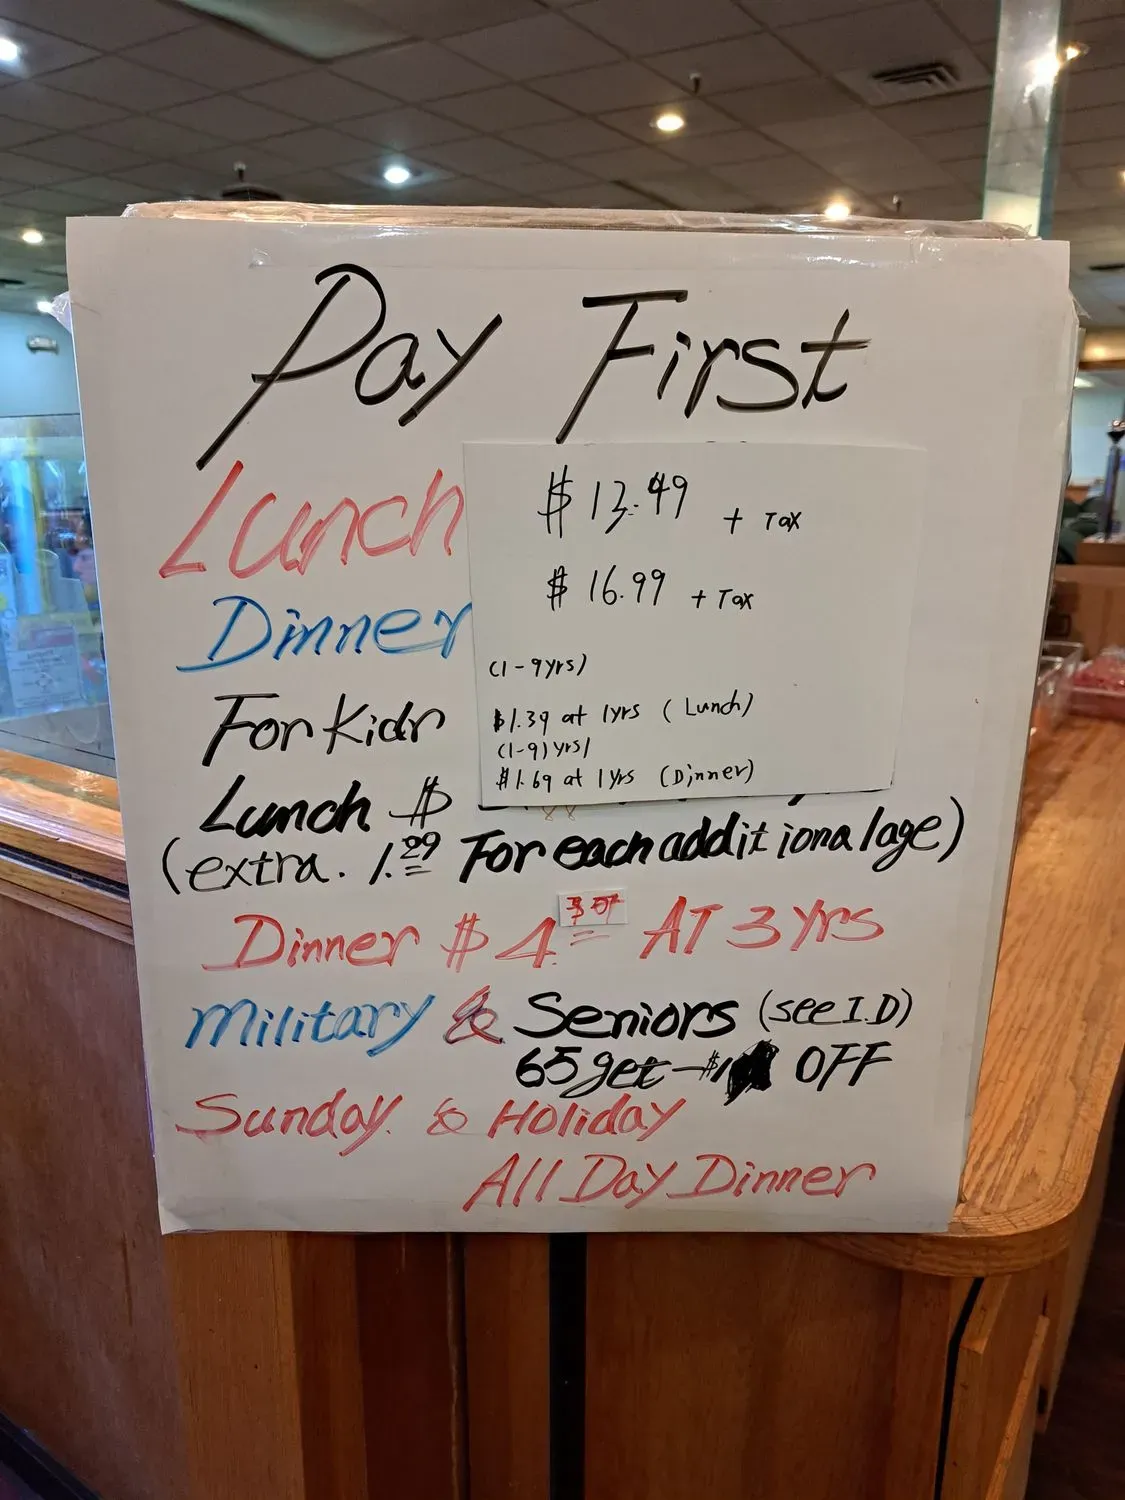 Pay First
Lunch $13.49 + Tax
Dinner $16.99 + Tax
(1-9yrs)
For Kids
$1.39 at 1yrs (Lunch)
(1-9)yrs)
$1.69 at 1yrs (Dinner)
Lunch $
(extra. 1.29 For each additional age)
Dinner $4. AT 3 yrs
Military & Seniors (see I.D)
65 get - $1 OFF
Sunday & Holiday
All Day Dinner